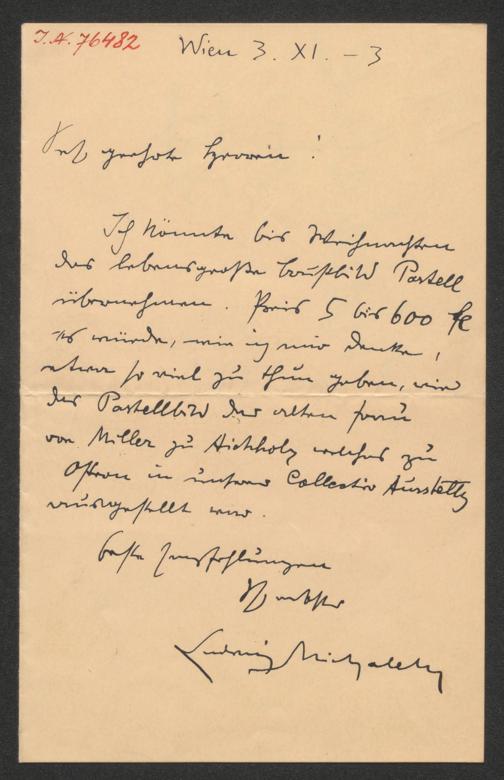 I.N. 76482
Wien 3. XI. – 3
Sehr geehrte !
Ich könnte bis Weihnachten
das lebensgroße Brustbild Pastell
übernehmen. Preis 5 bis 600 fl
es würde, wie ich mir denke,
etwa so viel zu thun geben, wie
das Pastellbild der alten Frau
von Miller zu Aichholz welches zu
Ostern in unserer Collectiv Ausstellg
ausgestellt war.
Beste Empfehlungen
Ludwig Michalek